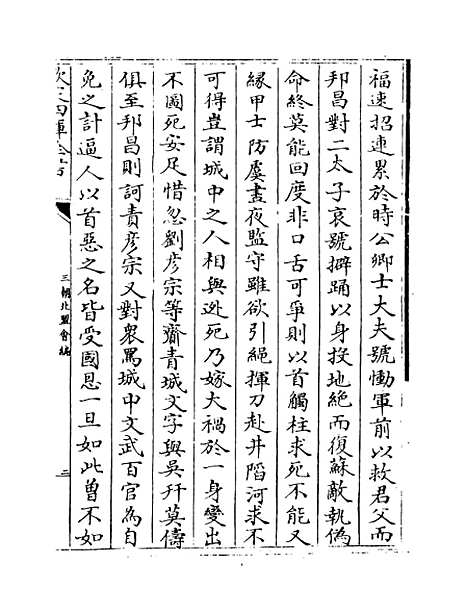 福速招連累於時公卿士大夫號慟軍前以救君父而
邦昌對二太子哀號擗踊以身投地絶而復蘇敵執偽
命終莫能回度非口舌可爭則以首觸柱求死不能又
縁甲士防虞晝夜監守雖欲引繩揮刀赴井蹈河求不
可得豈謂城中之人相與逃死乃嫁大禍於一身變出
不圖死安足惜忽劉彦宗等齎青城文字與吳幵莫儔
俱至邦昌則訶責彦宗又對衆罵城中文武百官為自
免之計逼人以首惡之名皆受國恩一旦如此曽不如
欽定四庫全書
三朝北盟會編
三